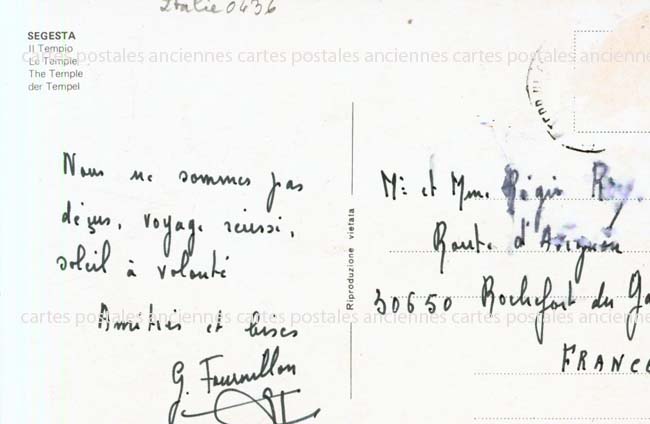 Italie 0436
SEGESTA
Il Tempio
Le Temple
The Temple
der Tempel
cartes postales anciennes cartes postales anciennes cartes postales anciennes
Nous ne sommes pas
déçus, voyage réussi,
soleil à volonté
Amitiés et bises
G. Fournillon
Riproduzione vietata
Mr et Mme Régis
Route d'Avignon
30650 Rochefort du Ga
FRANCE
cartes postales anciennes cartes postales anciennes cartes postales anciennes